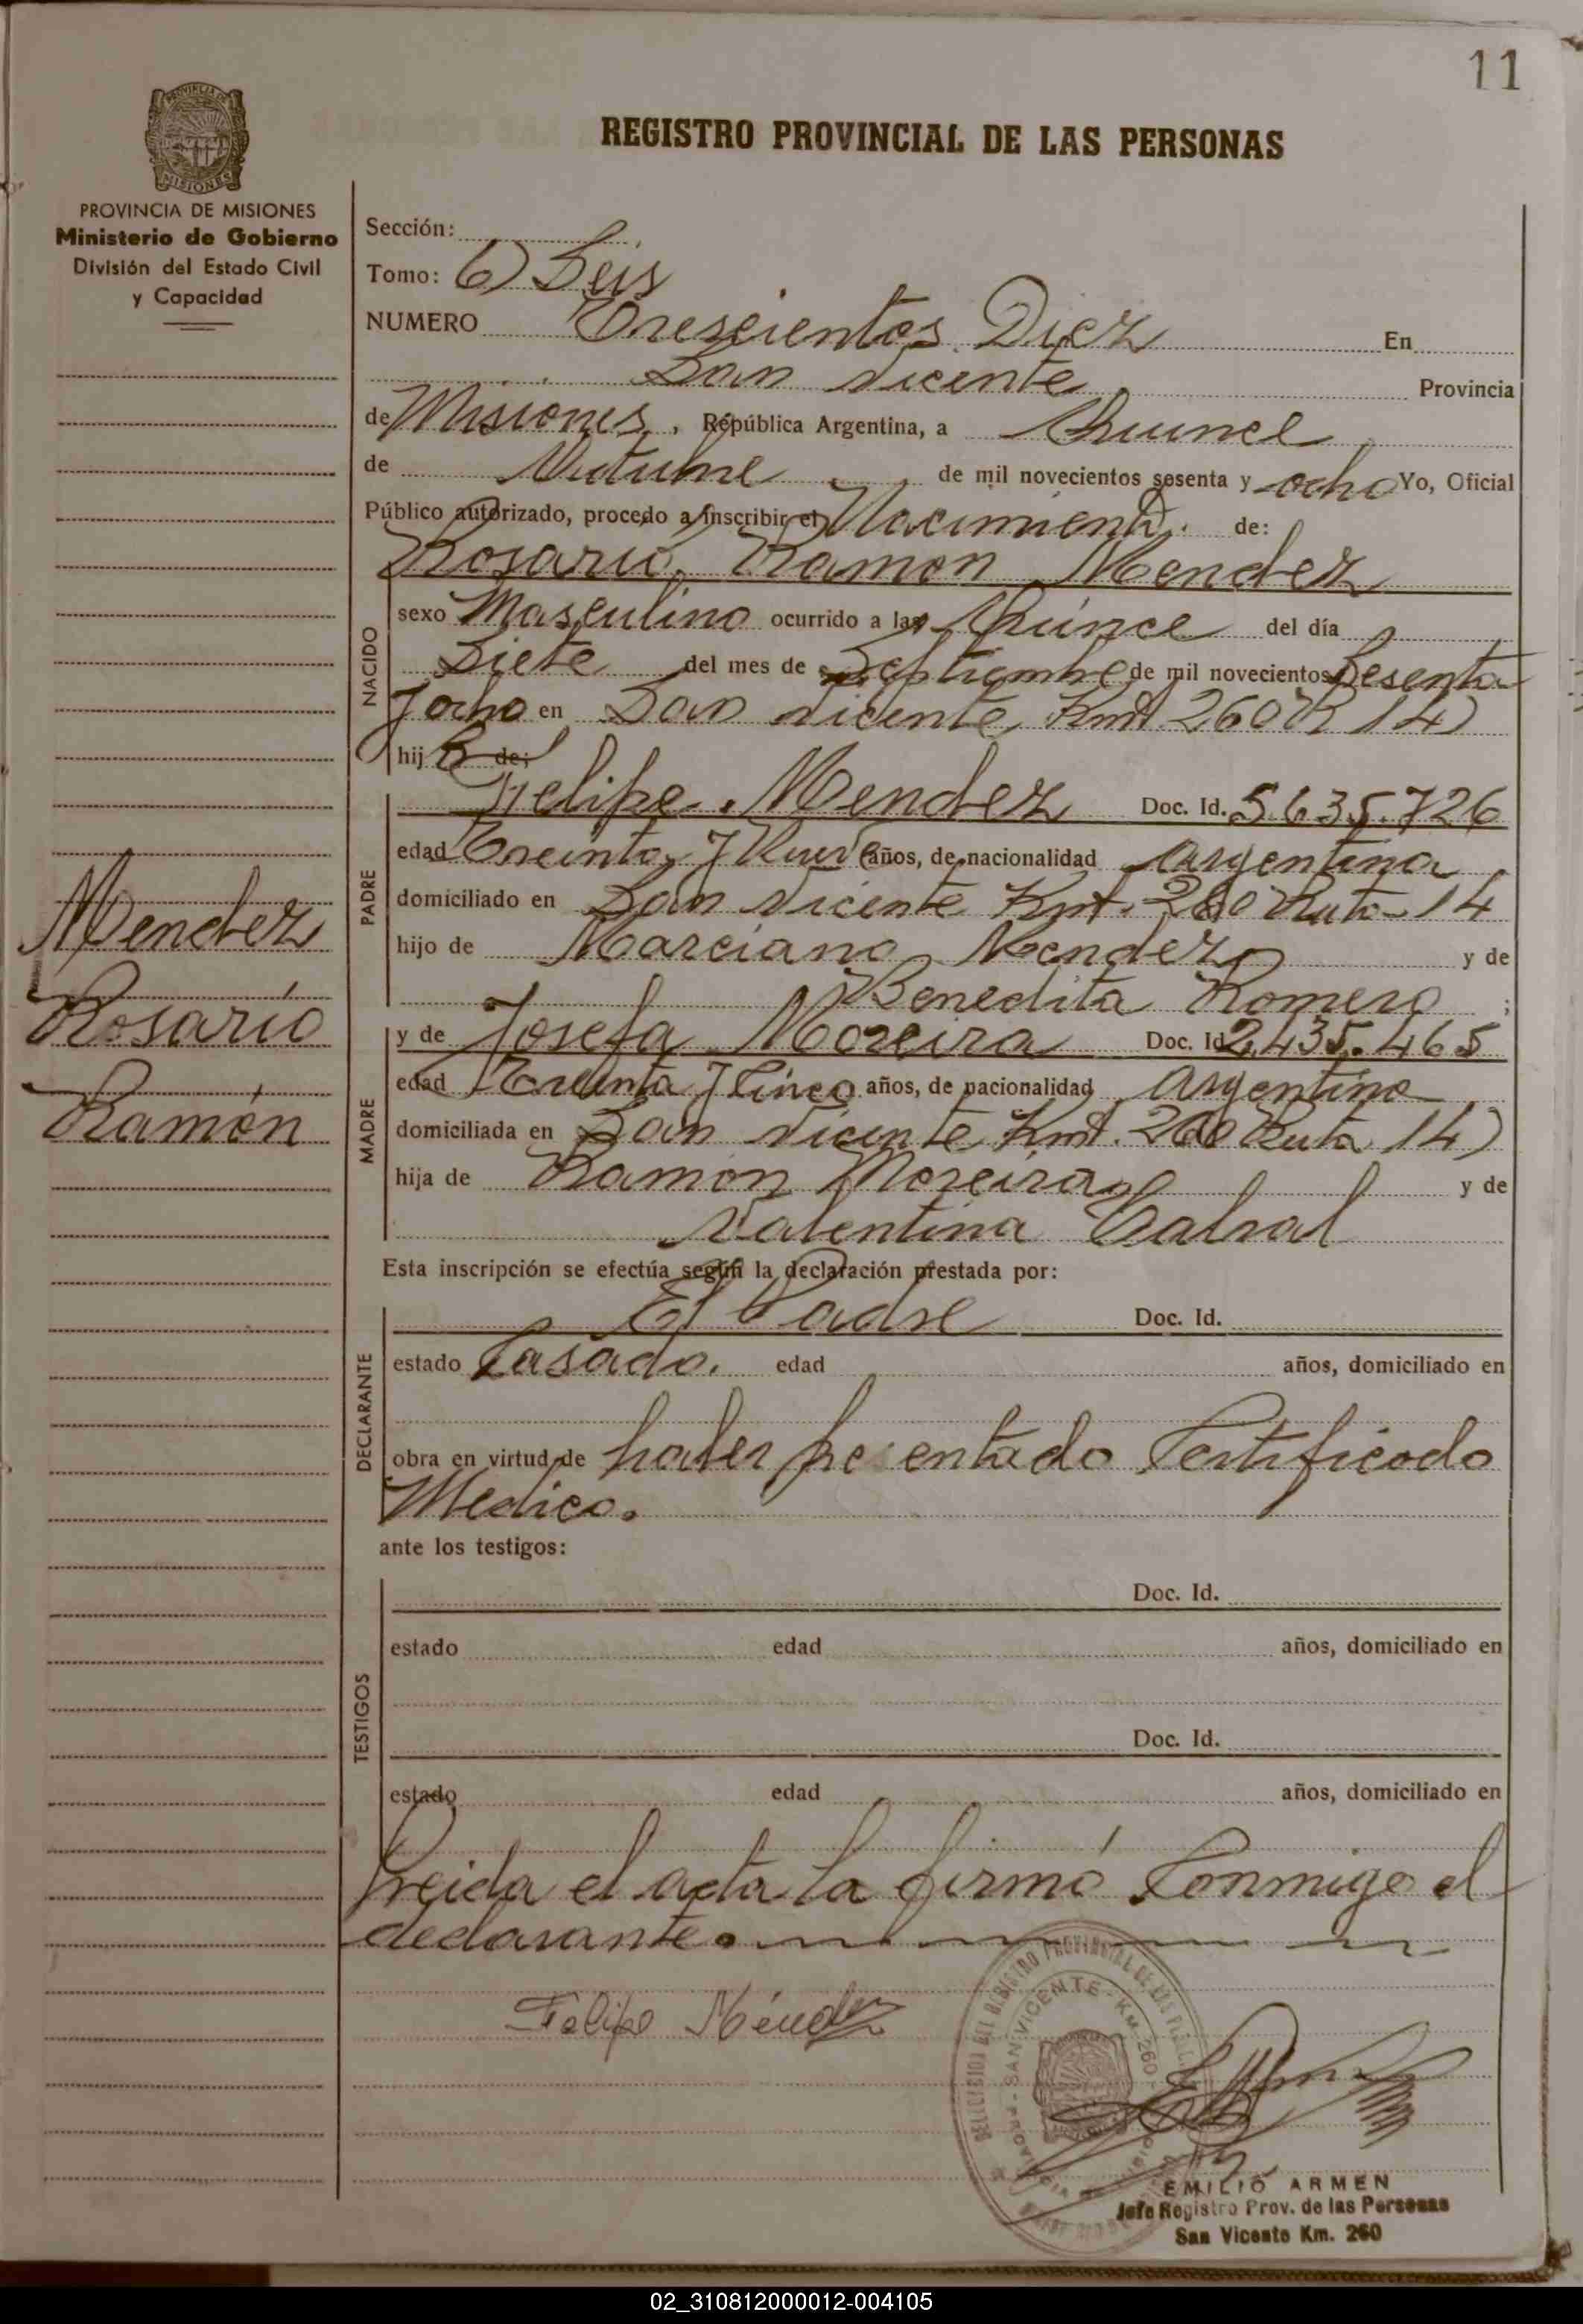 11
REGISTRO PROVINCIAL DE LAS PERSONAS
PROVINCIA DE MISIONES
Ministerio de Gobierno
División del Estado Civil
y Capacidad
Mendez
Rosario
Ramón
Sección:
Tomo: 6) Seis
NUMERO Trescientos Diez En
San Vicente Provincia
de Misiones, República Argentina, a Quince
de Octubre de mil novecientos sesenta y ocho Yo, Oficial
Público autorizado, procedo a inscribir el Nacimiento. de:
Rosario, Ramon Mendez
NACIDO
sexo Masculino ocurrido a las Quince del día
Siete del mes de Septiembre de mil novecientos Sesenta
y ocho en San Vicente, Kmt 260 R 14)
hijo de:
PADRE
Felipe Mendez Doc. Id. 5.635.726
edad Treinta y Nueve años, de nacionalidad Argentina
domiciliado en San Vicente Kmt. 260 Ruta 14
hijo de Marciano Mendez y de
Benedita Romero ;
MADRE
y de Josefa Moreira Doc. Id. 2.435.465
edad Treinta y Cinco años, de nacionalidad Argentina
domiciliada en San Vicente Kmt. 260 Ruta 14)
hija de Ramon Moreira y de
Valentina Cabral
Esta inscripción se efectúa según la declaración prestada por:
DECLARANTE
El Padre Doc. Id.
estado Casado. edad años, domiciliado en
obra en virtud de haber presentado Certificado
Medico.
ante los testigos:
TESTIGOS
Doc. Id.
estado edad años, domiciliado en
Doc. Id.
estado edad años, domiciliado en
Leida el acta la firmó Conmigo el
declarante.
Felipe Méndez
SAN VICENTE - KM. 260
EMILIO ARMEN
Jefe Registro Prov. de las Personas
San Vicente Km. 260
02_310812000012-004105